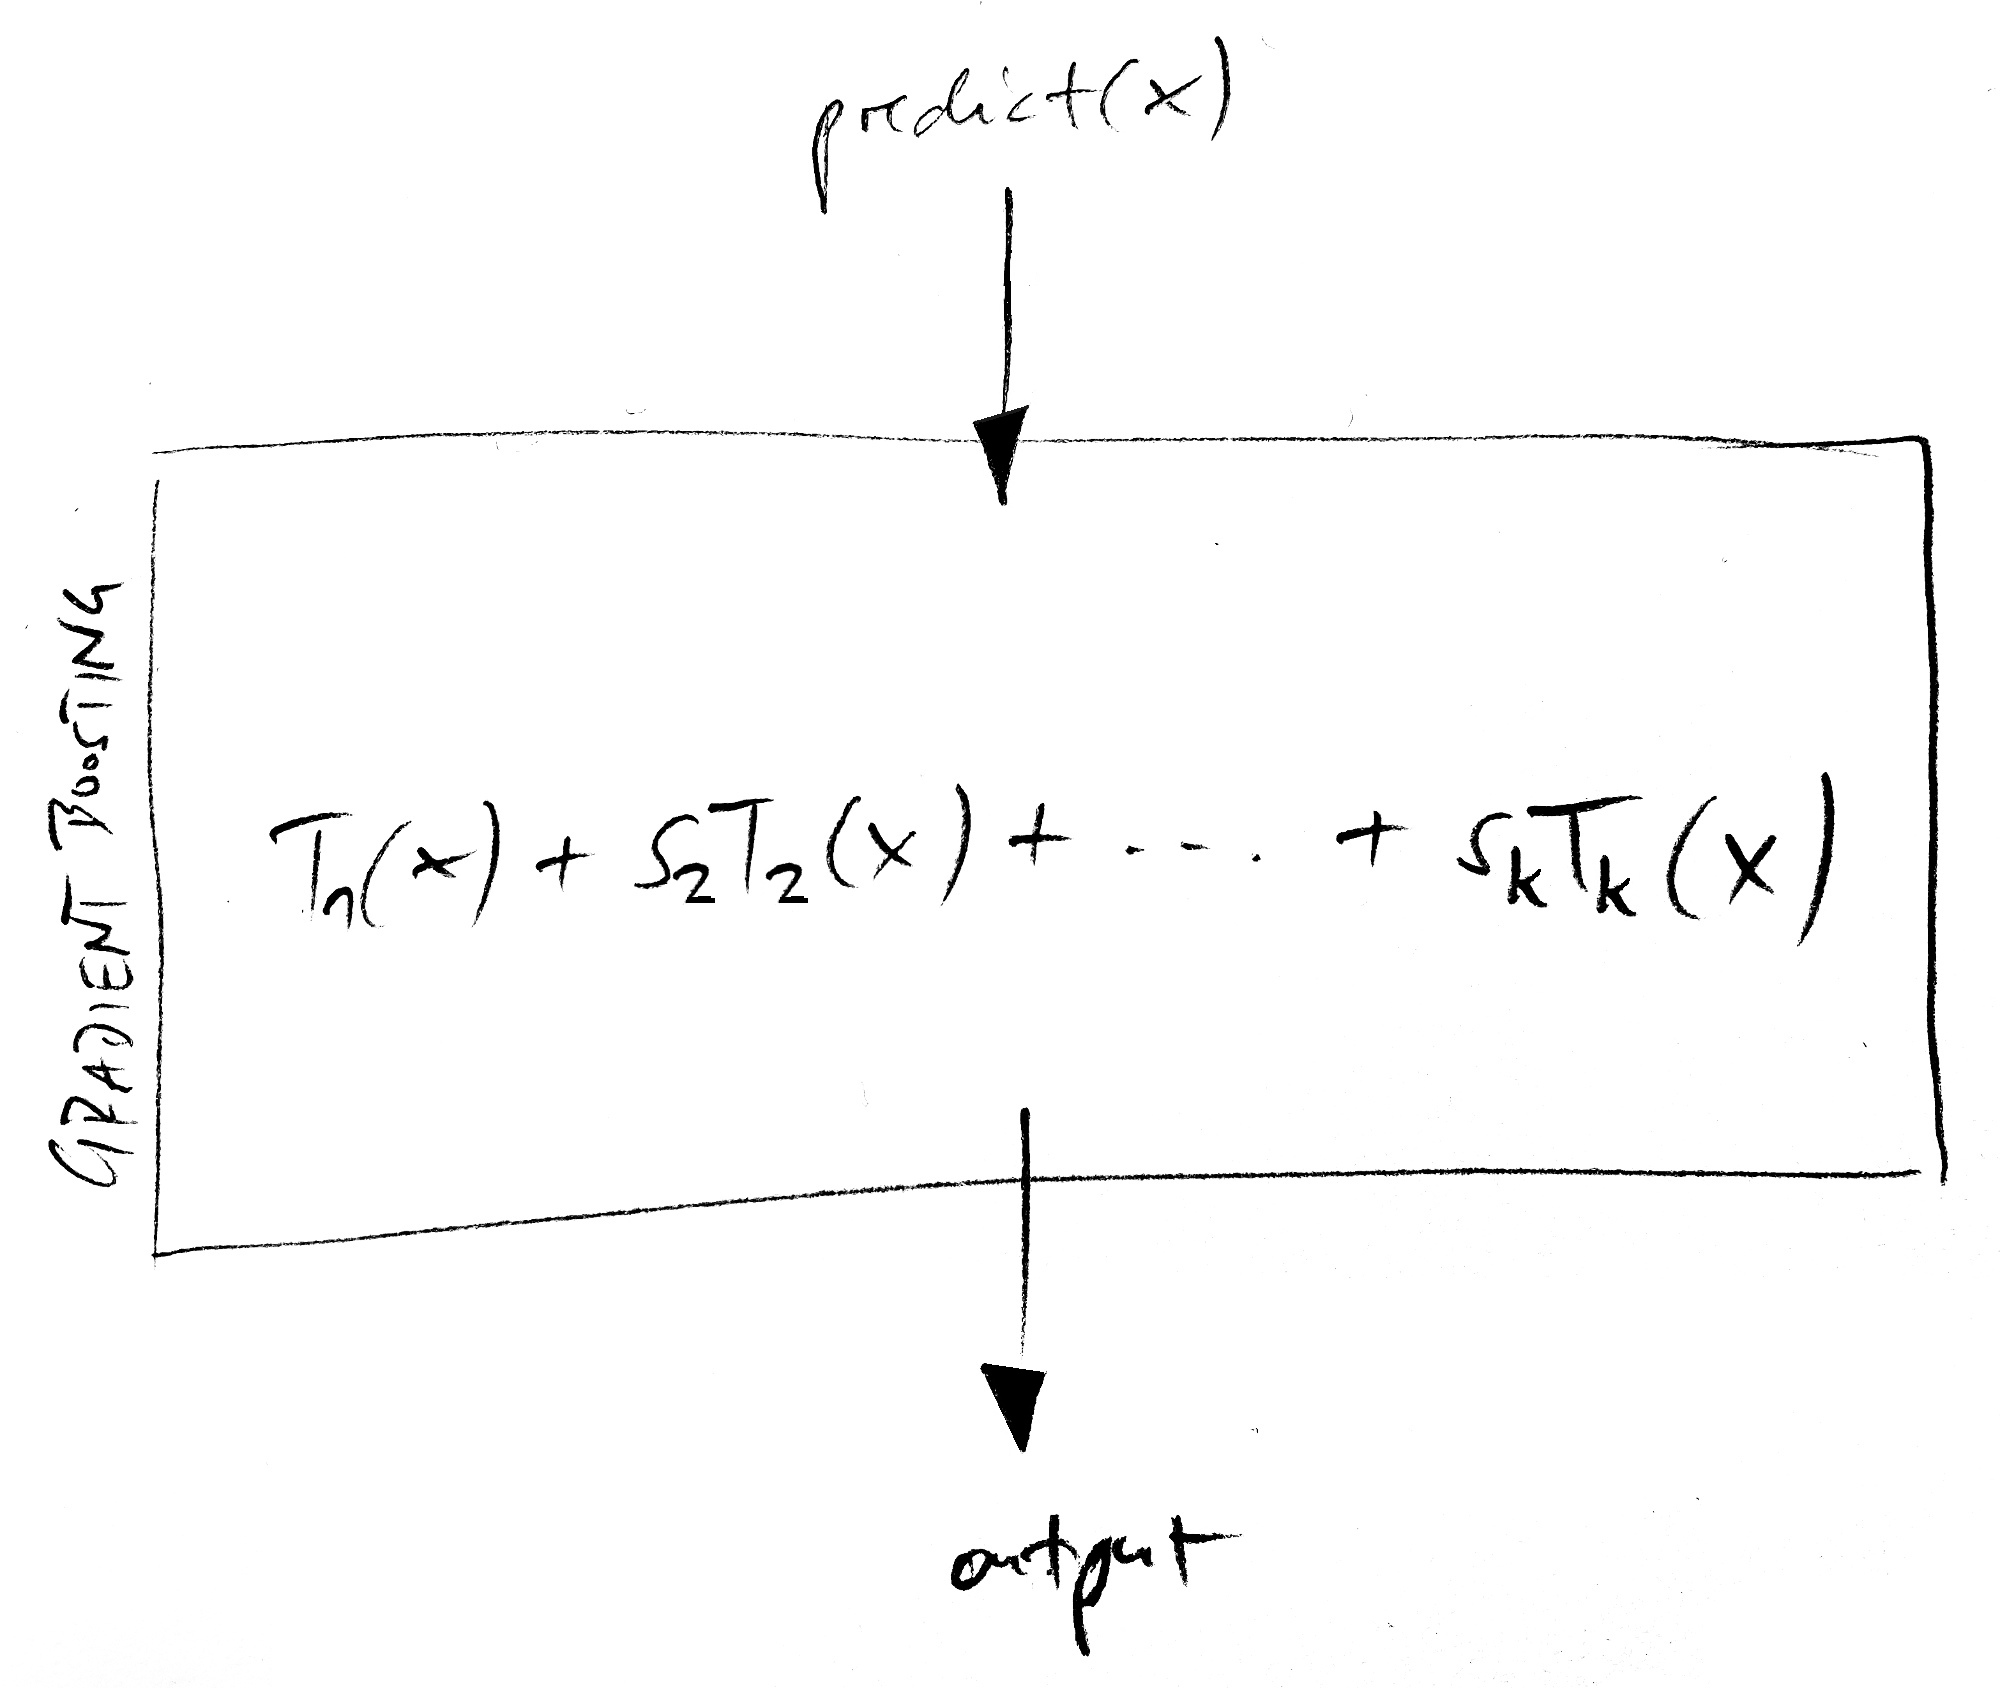 predict(x)
GRADIENT BOOSTING
T₁(x) + S₂T₂(x) + .... + SₖTₖ(x)
output